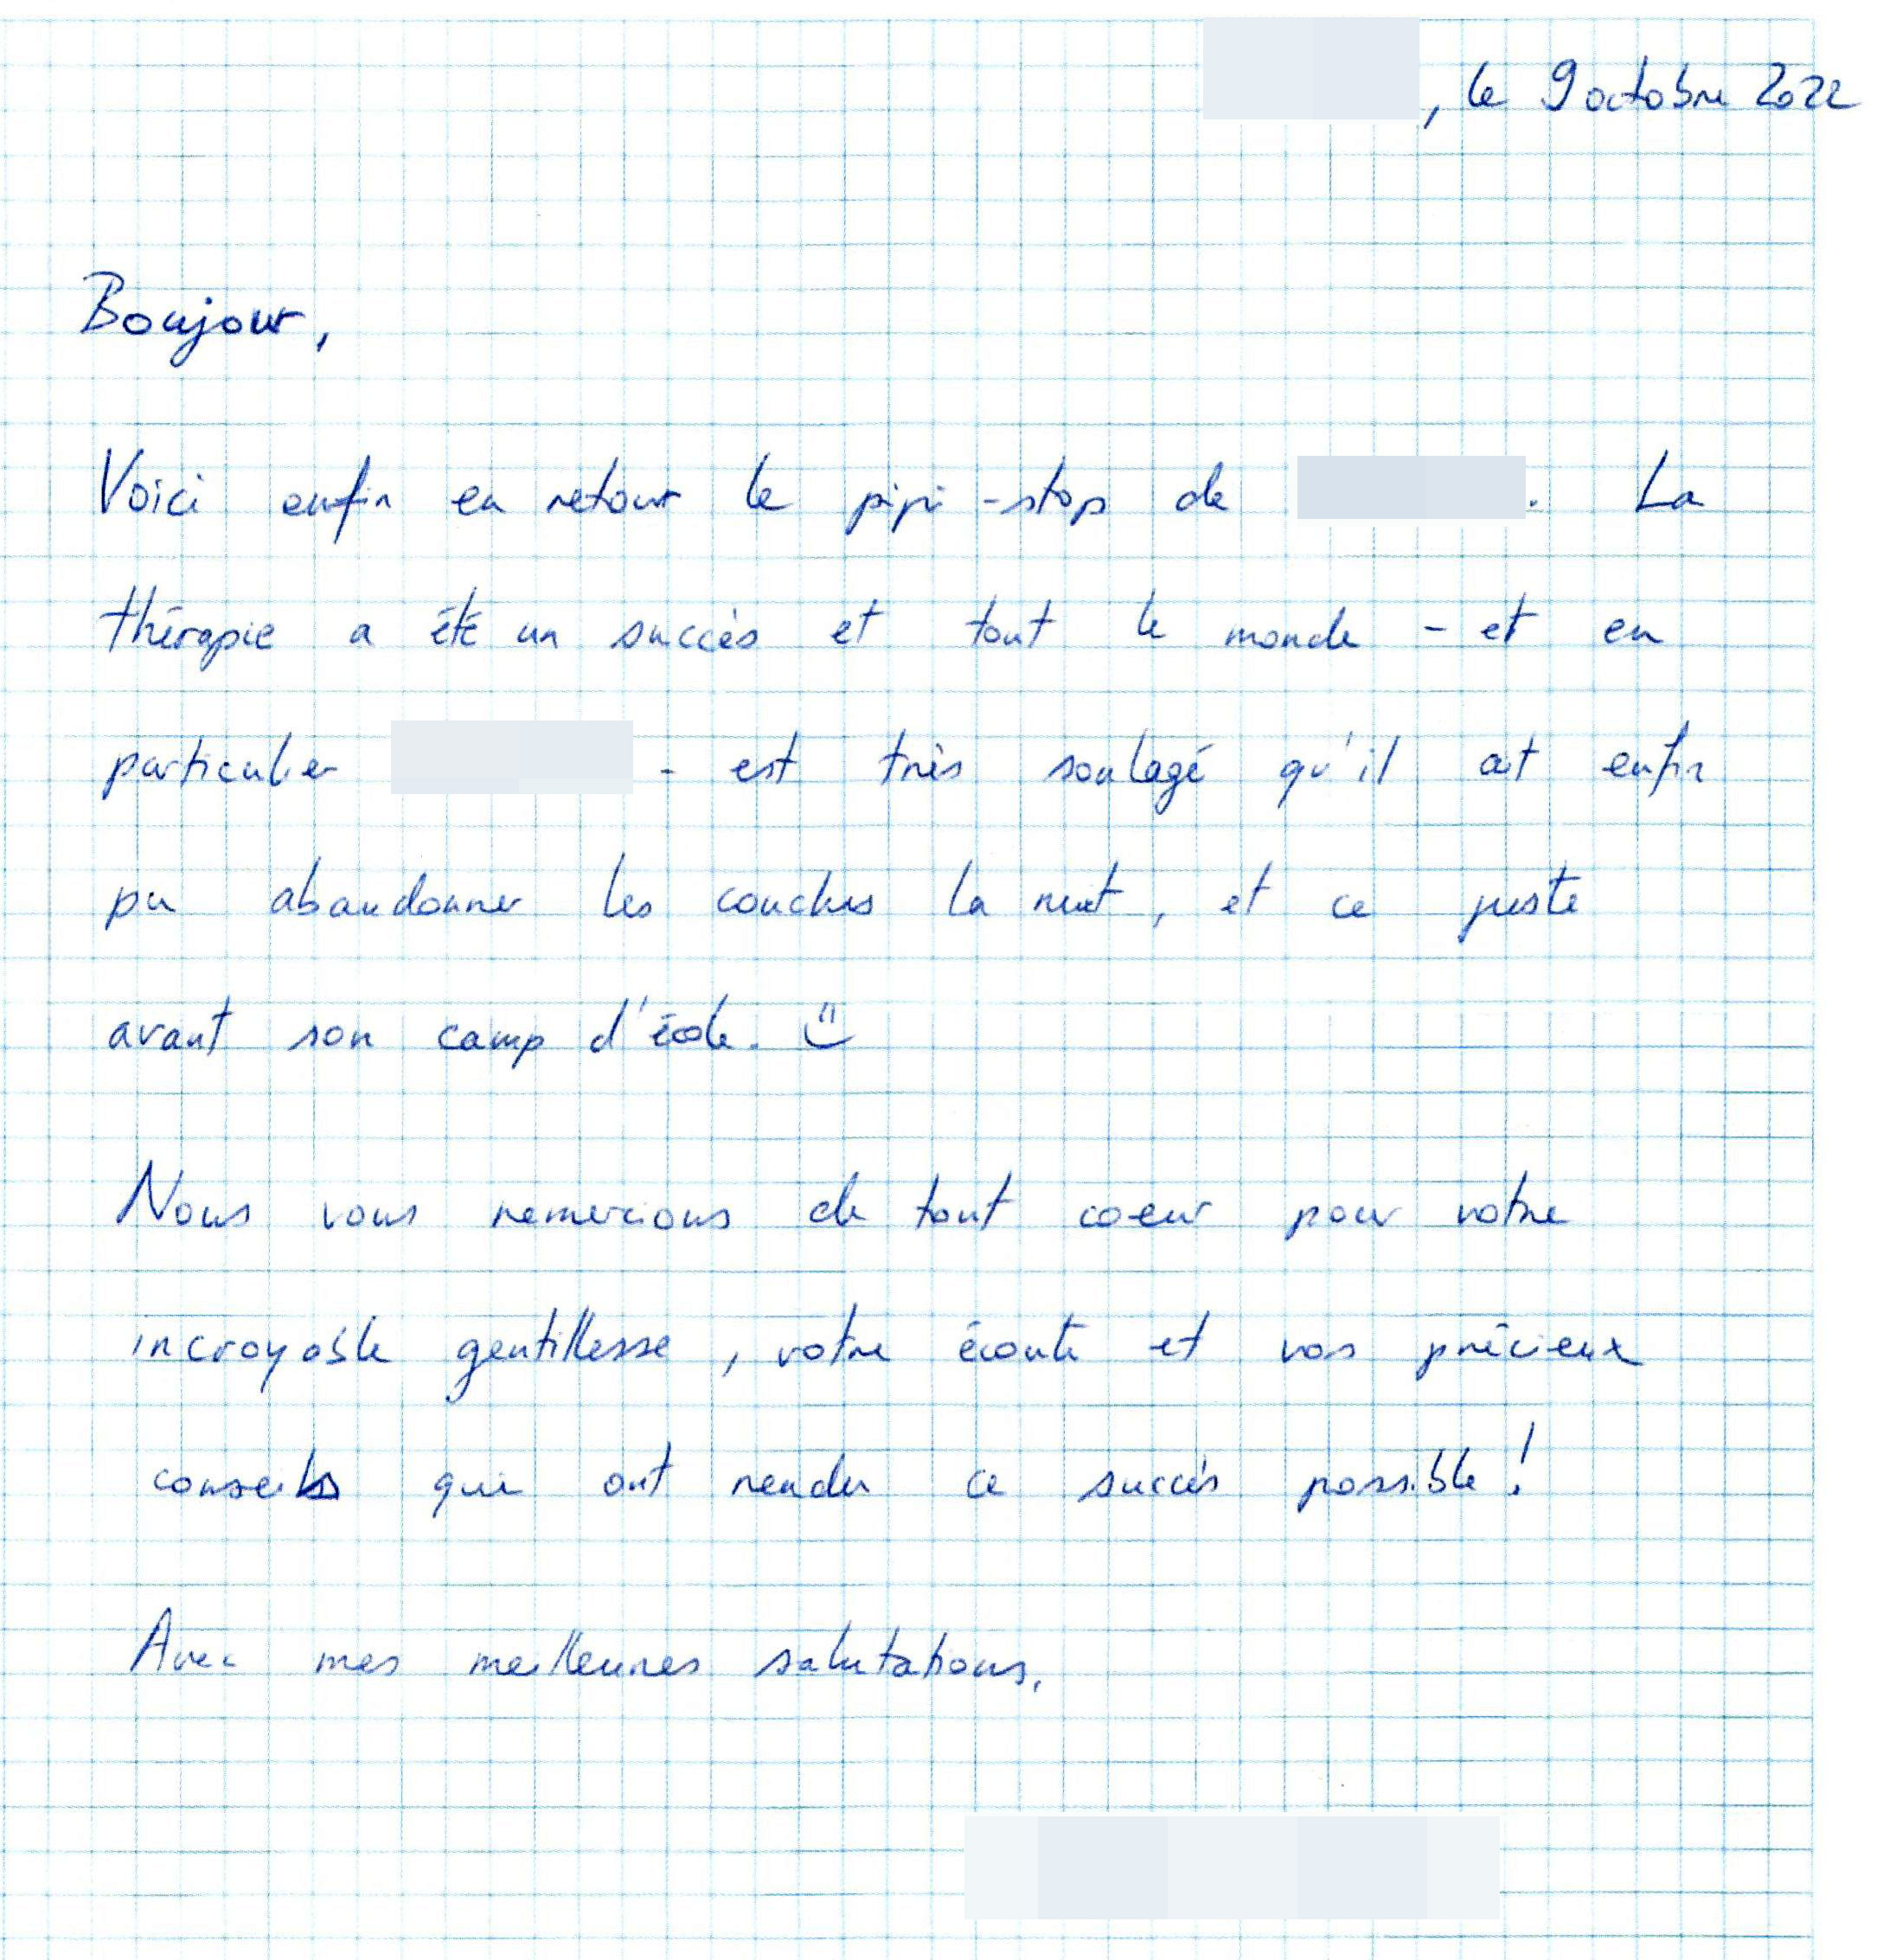 , le 9 octobre 2022
Bonjour,
Voici enfin en retour le pipi-stop de . La
thérapie a été un succès et tout le monde - et en
particulier - est très soulagé qu'il ait enfin
pu abandonner les couches la nuit, et ce juste
avant son camp d'école.
Nous vous remercions de tout coeur pour votre
incroyable gentillesse, votre écoute et vos précieux
conseils qui ont rendu ce succès possible!
Avec mes meilleures salutations,